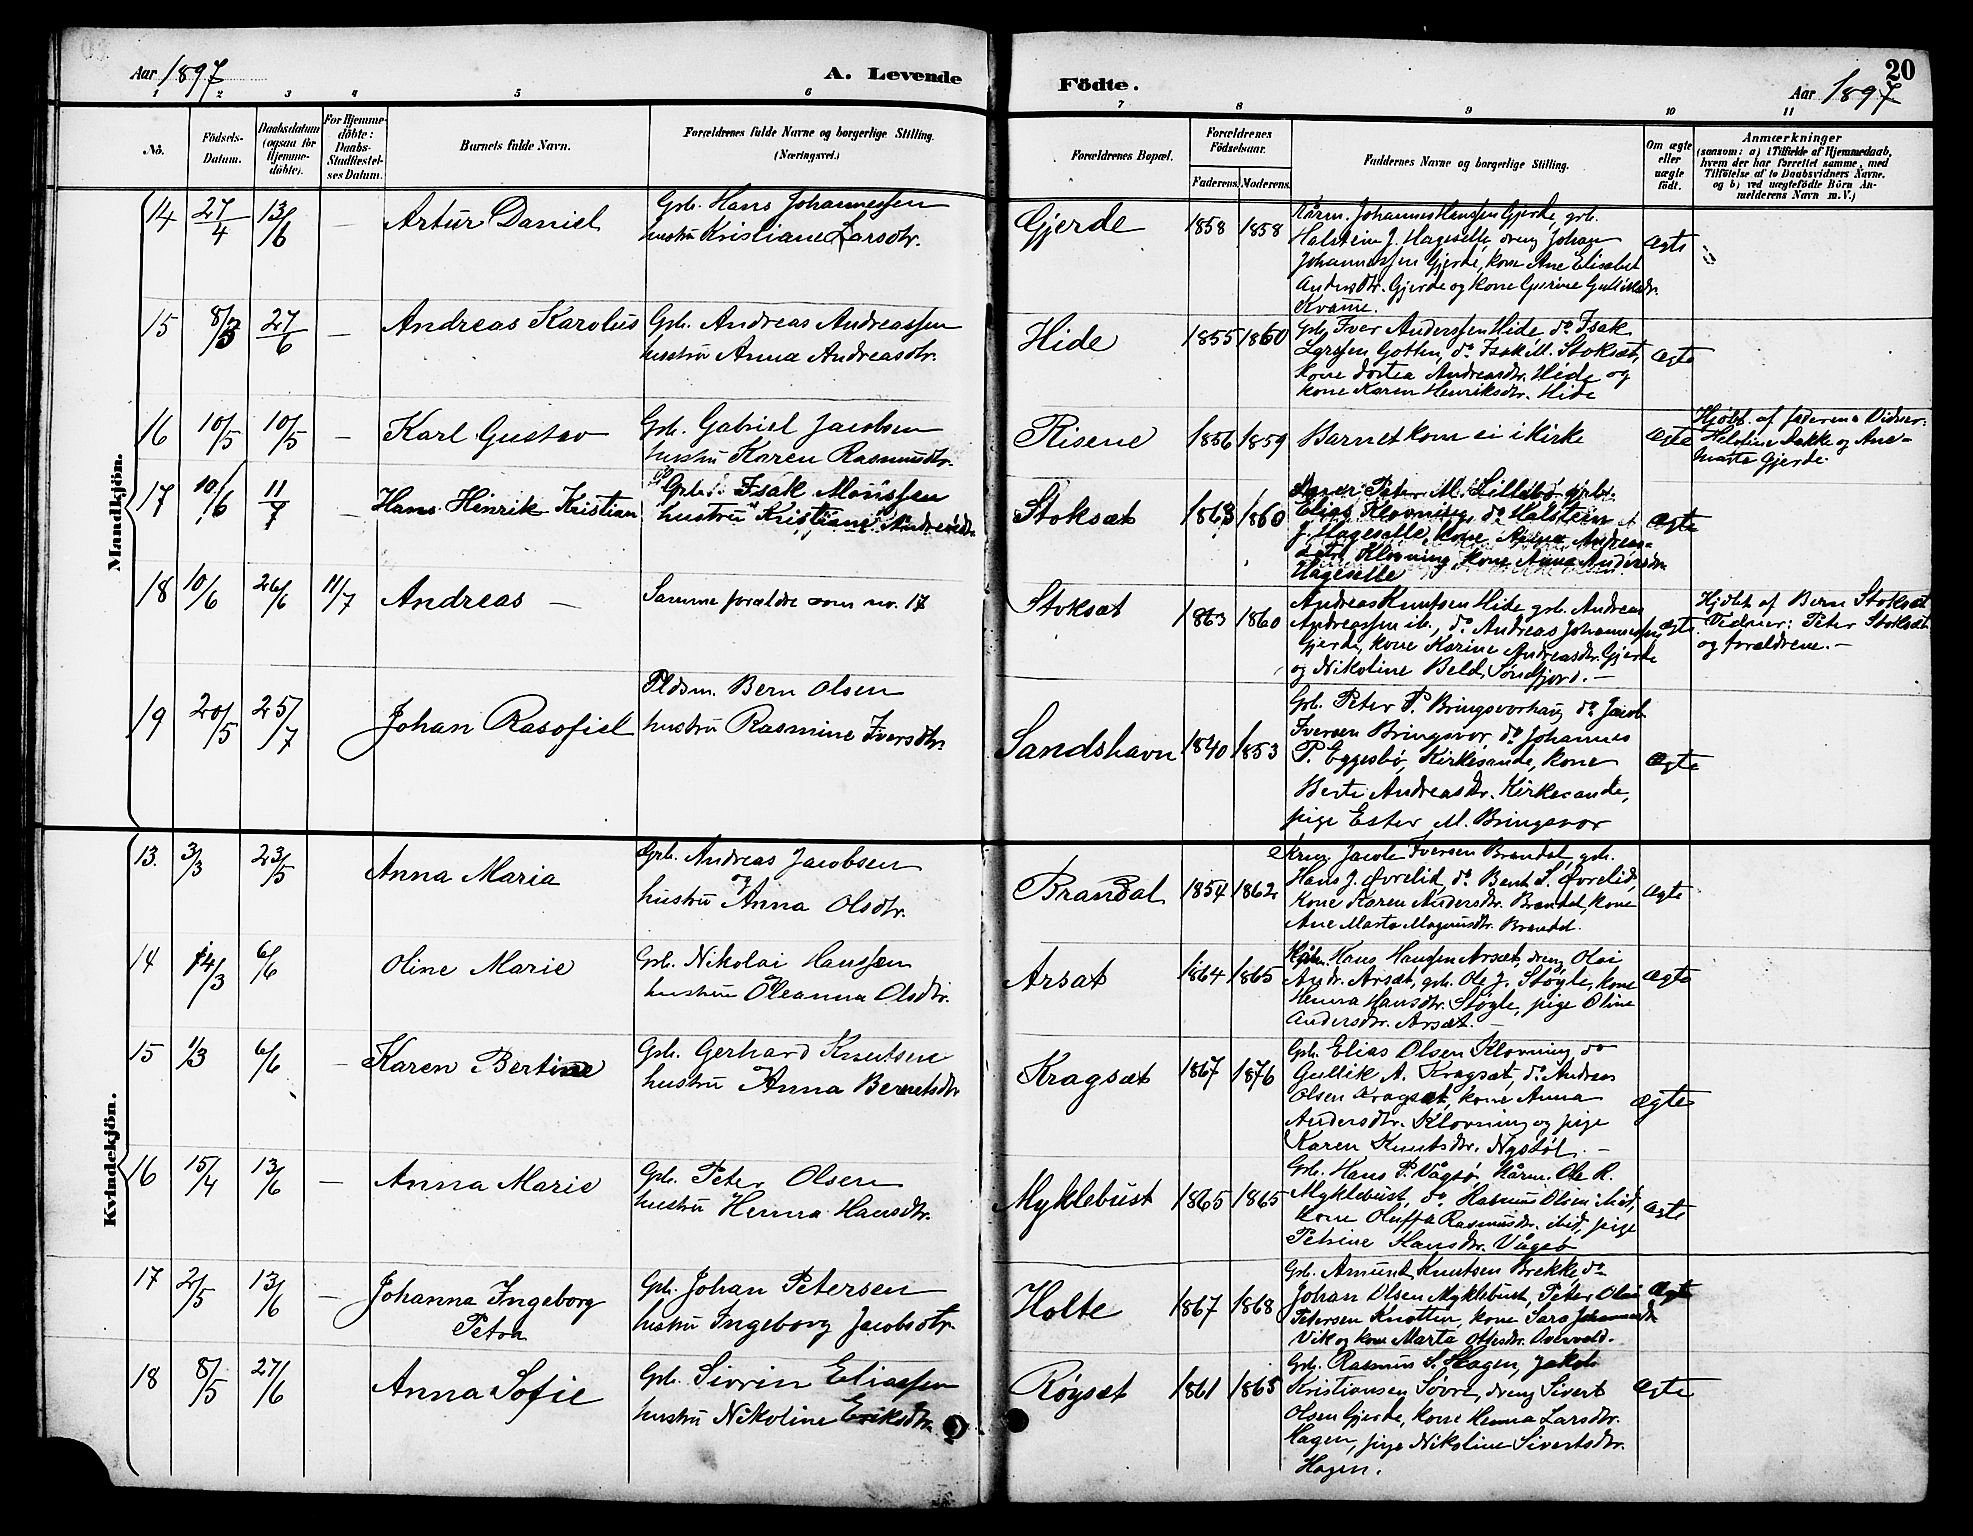 Aar 1897
A. Levende
1 2 3 4 5 6
No.
Födsels-
Datum.
Daabsdatum
(ogsaa for
Hjemme-
døbte).
For Hjemme-
döbte:
Daabs-
Stadfæstel-
ses Datum.
Barnets fulde Navn.
Forældrenes fulde Navne og borgerlige Stilling.
(Næringsvei.)
Mandkjön.
14 27/4 13/6 — Artur Daniel
Grb. Hans Johannessen
hustru Kristiane Larsdtr.
15 8/3 27/6 — Andreas Karolus
Grb. Andreas Andreassen
hustru Anna Andreasdtr.
16 10/5 10/5 — Karl Gustav
Grb. Gabriel Jacobsen
hustru Karen Rasmusdtr.
17 10/6 11/7 — Hans Hinrik Kristian
Grb. Isak Monssen
hustru Kristiane Andreasdtr.
18 10/6 26/6 11/7 Andreas —
Samme forældre som no. 17
19 20/5 25/7 Johan Rasofiel
Pldsm. Bern Olsen
hustru Rasmine Iversdtr.
Kvindekjön.
13. 3/3 23/5 Anna Maria
Grb. Andreas Jacobsen
og
hustru Anna Olsdtr.
14 14/3 6/6 Oline Marie
Grb. Nikolai Hanssen
hustru Oleanna Olsdtr.
15 1/3 6/6 — Karen Bertine
Grb. Gerhard Knutsen
hustru Anna Berntsdtr
16 15/4 13/6 — Anna Marie
Grb. Peter Olsen
hustru Henna Hansdtr.
17 2/5 13/6 — Johanna Ingeborg
Petra
Grb. Johan Petersen
hustru Ingeborg Jacobsdtr.
18 8/5 27/6 Anna Sofie
Grb. Sivrin Eliassen
hustru Nikoline Eriksdtr.
Födte.
20
Aar 1897
7 8 9 10 11
Forældrenes Bopæl.
Forældrenes
Födselsaar.
Faderens. Moderens.
Faddernes Navne og borgerlige Stilling.
Om ægte
eller
uægte
født.
Anmærkninger
(saasom: a) i Tilfælde af Hjemmedaab,
hvem der har forrettet samme, med
Tilföielse af to Daabsvidners Navne.
og b) ved uægtefödte Börn An-
melderens Navn m. V.)
Gjerde 1858 1858
Kårm. Johannes Hanssen Gjerde, grb.
Halstein J. Hageselle, dreng Johan
Johannessen Gjerde, kone Ane Elisabet
Andersdtr. Gjerde og kone Gurine Gulliksdr.
Kvame.
ægte
Hide 1855 1860
Grb. Iver Anderssen Hide, do Isak
Larssen Gotten, do Isak M. Stoksæt,
kone Dortea Andreasdtr. Hide og
kone Karen Henriksdtr. Hide
ægte
Risene 1856 1859 Barnet kom ei i Kirke
ægte
Hjøbt. af faderen Vidner:
Helstine Bakke og Ane
Marta Gjerde.
Stoksæt 1863 1860
Peter M. Lillebø grb.
Elias Klovning, do Halstein
J. Hageselle, kone Anna Andreas-
datr. Klovning, kone Anna Andersdtr
Hageselle
ægte
Stoksæt 1863 1860
Andreas Knutsen Hide grb. Andreas
Andreassen ib., do Andreas Johannessen
Gjerde, kone Karine Andreasdtr. Gjerde
og Nikoline Beld, Søndfjord. —
ægte
Hjdbt. af Bern Stoksæt
Vidner: Peter Stoksæt
og forældrene. —
Sandshavn 1840 1853
Grb. Peter P. Bringsvorhaug do Jacob
Iversen Bringsvor, do Johannes
P. Eggesbø, Kirkesande, kone
Berte Andreasdtr. Kirkesande,
pige Ester M. Bringsvor
ægte
Brandal 1854 1862
Jacob Iversen Brandal, grb.
Hans J. Øvrelid, do Bent S. Øvrelid,
kone Karen Andersdtr. Brandal, kone
Ane Marta Magnusdtr. Brandal.
ægte
Arsæt 1864 1865
Hans Hansen Arsæt, dreng Olai
Andr. Arsæt, grb. Ole J. Støyle, kone
Henna Hansdtr. Støyle, pige Oline
Andersdtr. Arsæt. —
ægte
Kragsæt 1867 1876
Grb. Elias Olsen Klovning do
Gullik A. Kragsæt, do Andreas
Olsen Kragsæt, kone Anna
Andersdtr. Klovning og pige
Karen Knutsdtr. Nystøl. —
ægte
Myklebust 1865 1865
Grb. Hans P. Vågsø, Kårm. Ole R.
Myklebust, do Rasmus Olsen ibid,
kone Oluffa Rasmusdtr. ibid, pige
Petrine Hansdtr. Vågsø
ægte
Holte 1867 1868
Grb. Amund Knutsen Brekke, do
Johan Olsen Myklebust, Peter Olai
Petersen Knotten, kone Sara Johannesdtr
Vik og kone Marta Olsdtr. Aasevold.
ægte
Röysæt 1861 1865
Grb. Rasmus S. Hagen, Jakob
Kristiansen Søvre, dreng Sivert
Olsen Gjerde, kone Henna Larsdtr.
Hagen, pige Nikoline Sivertsdtr.
Hagen.
ægte